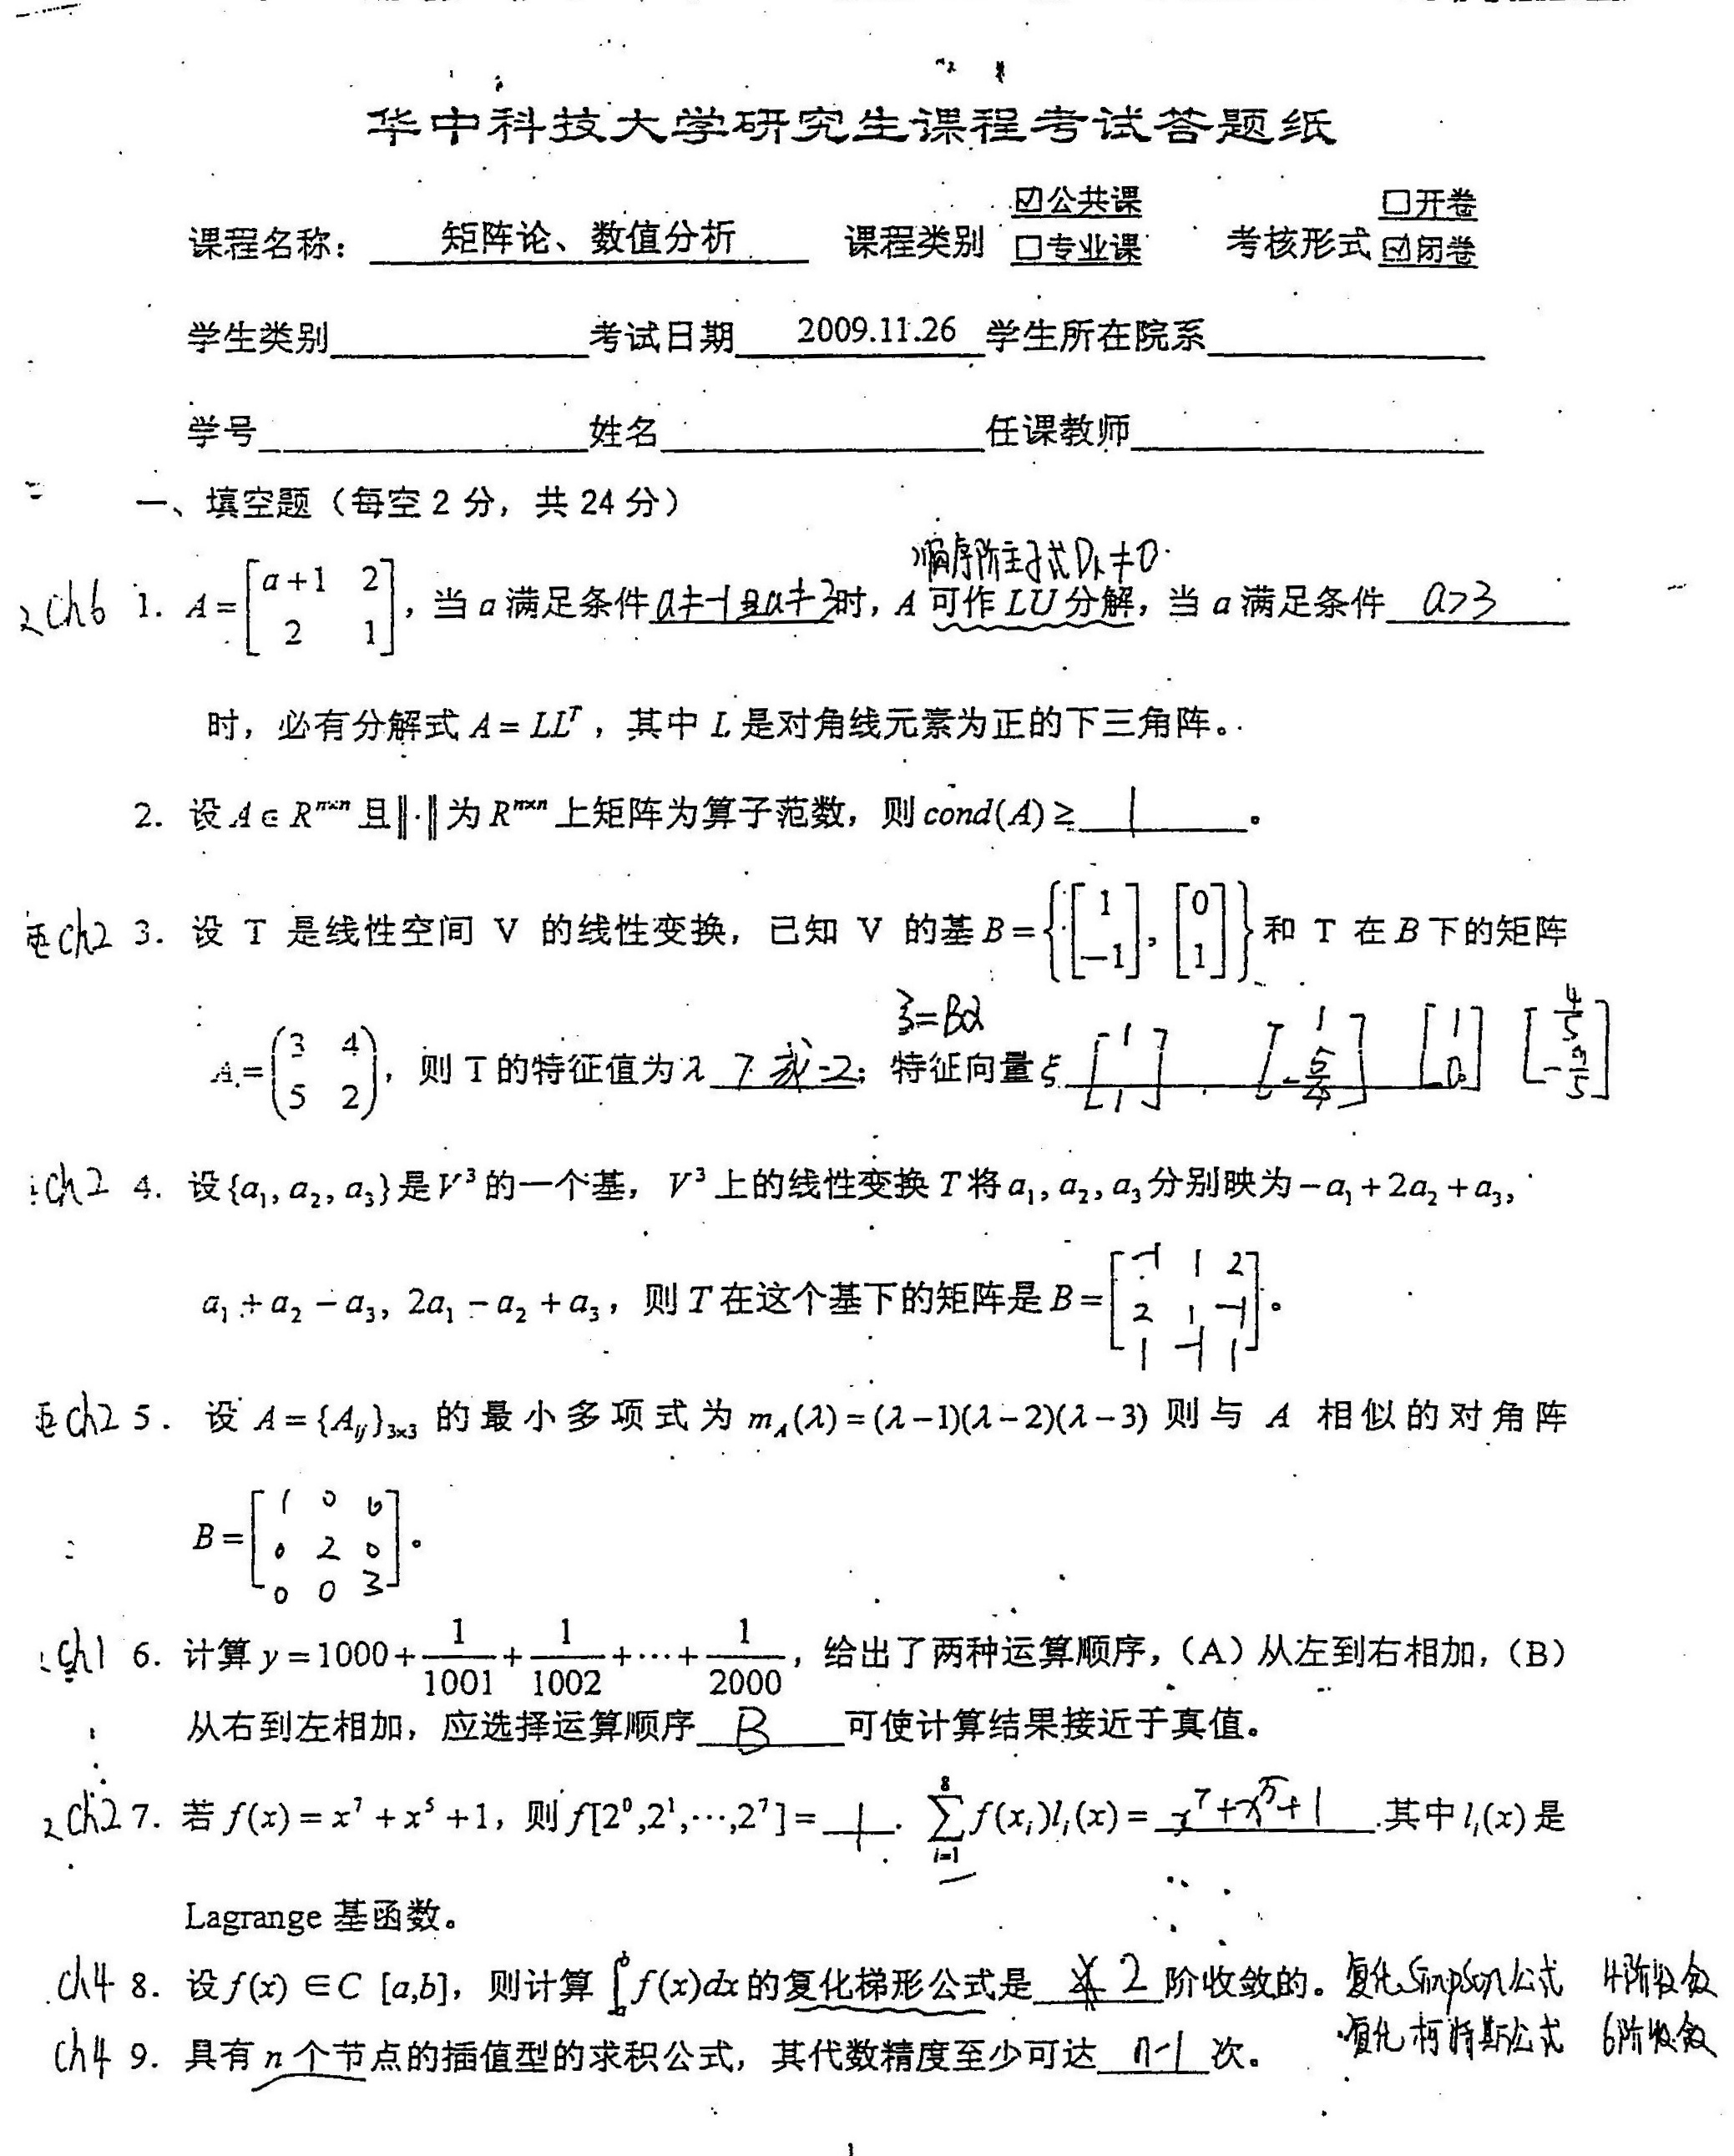 华中科技大学研究生课程考试答题纸
课程名称： 矩阵论、数值分析 课程类别 ☑公共课 □专业课 考核形式 □开卷 ☑闭卷
学生类别 考试日期 2009.11.26 学生所在院系
学号 姓名 任课教师
一、填空题（每空 2 分，共 24 分）
顺序阶主子式Dₖ≠0
ch6 1. A=[a+1 2; 2 1]，当 a 满足条件 a≠-1且a≠3 时，A 可作 LU 分解，当 a 满足条件 a>3
时，必有分解式 A=LLᵀ，其中 L 是对角线元素为正的下三角阵。
2. 设 A∈Rⁿˣⁿ 且‖·‖为 Rⁿˣⁿ 上矩阵为算子范数，则 cond(A)≥ 1 。
ch2 3. 设 T 是线性空间 V 的线性变换，已知 V 的基 B={[1; −1], [0; 1]} 和 T 在 B 下的矩阵
ξ=Bα
A=(3 4; 5 2)，则 T 的特征值为 λ 7 或 -2；特征向量 ξ [1; 1] [1; -5/4] [1; 0] [4/5; -9/5]
ch2 4. 设{a₁, a₂, a₃}是 V³ 的一个基，V³ 上的线性变换 T 将 a₁, a₂, a₃ 分别映为 −a₁+2a₂+a₃,
a₁+a₂−a₃, 2a₁−a₂+a₃，则 T 在这个基下的矩阵是 B=[-1 1 2; 2 1 -1; 1 -1 1]。
ch2 5. 设 A={Aᵢⱼ}₃ₓ₃ 的最小多项式为 m_A(λ)=(λ−1)(λ−2)(λ−3) 则与 A 相似的对角阵
B=[1 0 0; 0 2 0; 0 0 3]。
ch1 6. 计算 y=1000+1/1001+1/1002+⋯+1/2000，给出了两种运算顺序，（A）从左到右相加，（B）
从右到左相加，应选择运算顺序 B 可使计算结果接近于真值。
ch2 7. 若 f(x)=x⁷+x⁵+1，则 f[2⁰,2¹,⋯,2⁷]= 1 . ∑ᵢ₌₁⁸ f(xᵢ)lᵢ(x)= x⁷+x⁵+1 .其中 lᵢ(x) 是
Lagrange 基函数。
ch4 8. 设 f(x)∈C [a,b]，则计算 ∫ₐᵇ f(x)dx 的复化梯形公式是 2 阶收敛的。 复化Simpson公式 4阶收敛
复化柯特斯公式 6阶收敛
ch4 9. 具有 n 个节点的插值型的求积公式，其代数精度至少可达 n-1 次。
1